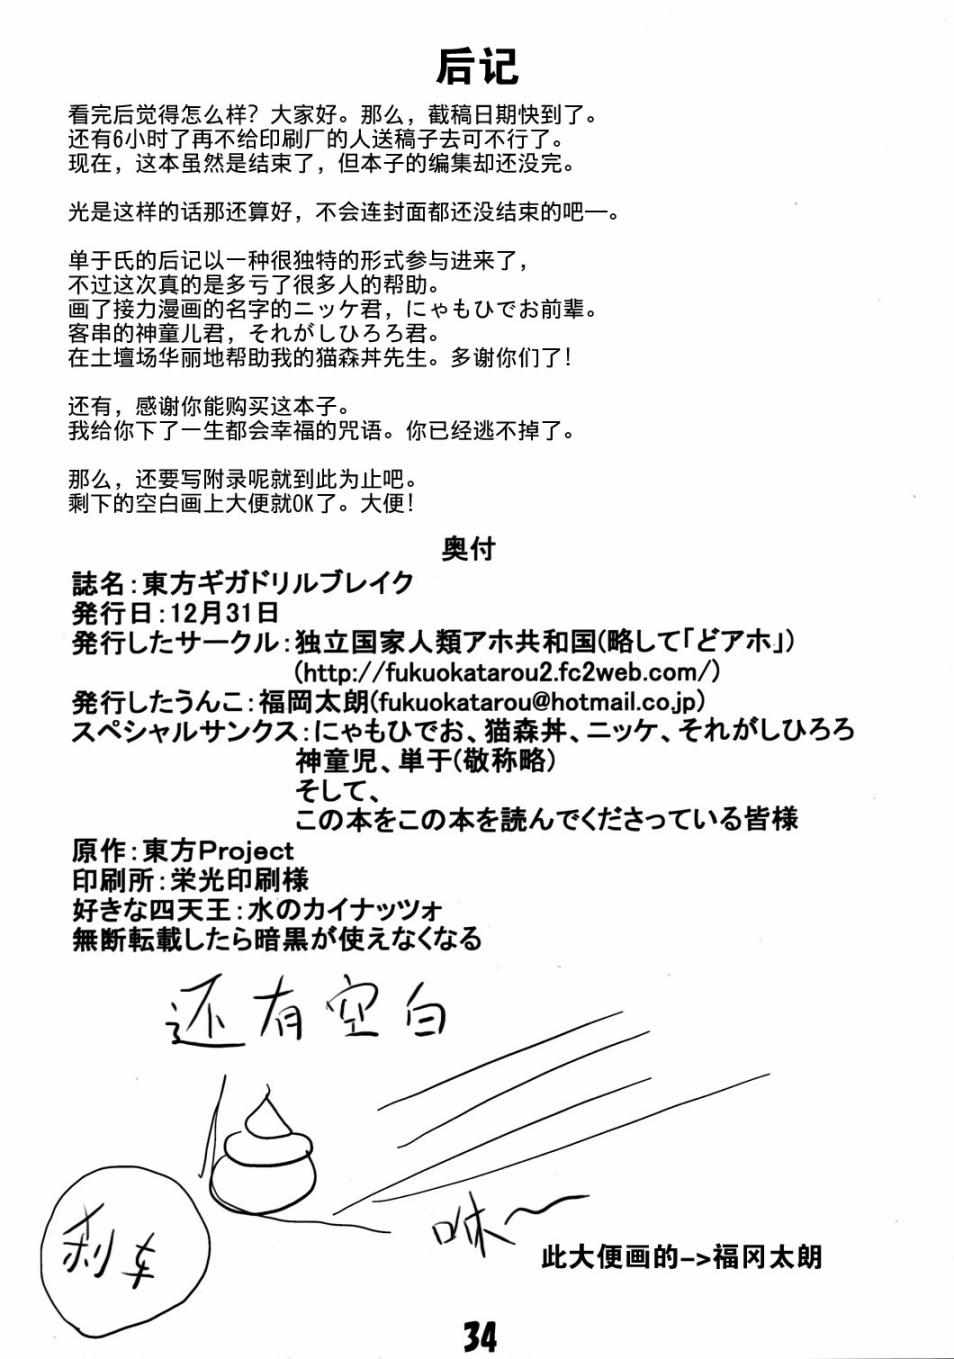 后记
看完后觉得怎么样？大家好。那么，截稿日期快到了。
还有6小时了再不给印刷厂的人送稿子去可不行了。
现在，这本虽然是结束了，但本子的编集却还没完。
光是这样的话那还算好，不会连封面都还没结束的吧—。
单于氏的后记以一种很独特的形式参与进来了，
不过这次真的是多亏了很多人的帮助。
画了接力漫画的名字的ニッケ君，にゃもひでお前辈。
客串的神童儿君，それがしひろろ君。
在土壇场华丽地帮助我的猫森丼先生。多谢你们了！
还有，感谢你能购买这本子。
我给你下了一生都会幸福的咒语。你已经逃不掉了。
那么，还要写附录呢就到此为止吧。
剩下的空白画上大便就OK了。大便！
奥付
誌名：東方ギガドリルブレイク
発行日：12月31日
発行したサークル：独立国家人類アホ共和国（略して「どアホ」）
（http://fukuokatarou2.fc2web.com/）
発行したうんこ：福岡太朗（fukuokatarou@hotmail.co.jp）
スペシャルサンクス：にゃもひでお、猫森丼、ニッケ、それがしひろろ
神童児、単于（敬称略）
そして、
この本をこの本を読んでくださっている皆様
原作：東方Project
印刷所：栄光印刷様
好きな四天王：水のカイナッツォ
無断転載したら暗黒が使えなくなる
还有空白
刹车
咻～
此大便画的->福冈太朗
34